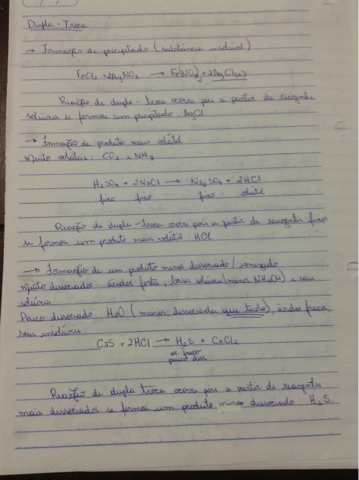 Dupla - Troca
→ Formação de precipitado (substância insolúvel)
FeCl₂ + 2AgNO₃ → Fe(NO₃)₂ + 2AgCl(s)
Reação de dupla - troca ocorre pois a partir de reagente
solúveis se formou um precipitado AgCl
→ Formação de produto mais volátil
Muito voláteis: CO₂ e NH₃
H₂SO₄ + 2NaCl → Na₂SO₄ + 2HCl
fixo fixo fixo volátil
Reação de dupla - troca ocorre pois a partir de reagentes fixos
se formou um produto mais volátil HCl.
→ Formação de um produto menos dissociado / ionizado
Muito dissociados: ácidos fortes, bases solúveis (menos NH₄OH) e sais
solúveis
Pouco dissociado: H₂O (menos dissociada que tudo), ácidos fracos,
sais insolúveis
CaS + 2HCl → H₂S + CaCl₂
ác. fraco
pouco diss
Reação de dupla troca ocorre pois a partir de reagentes
mais dissociados se formou um produto menos dissociado H₂S